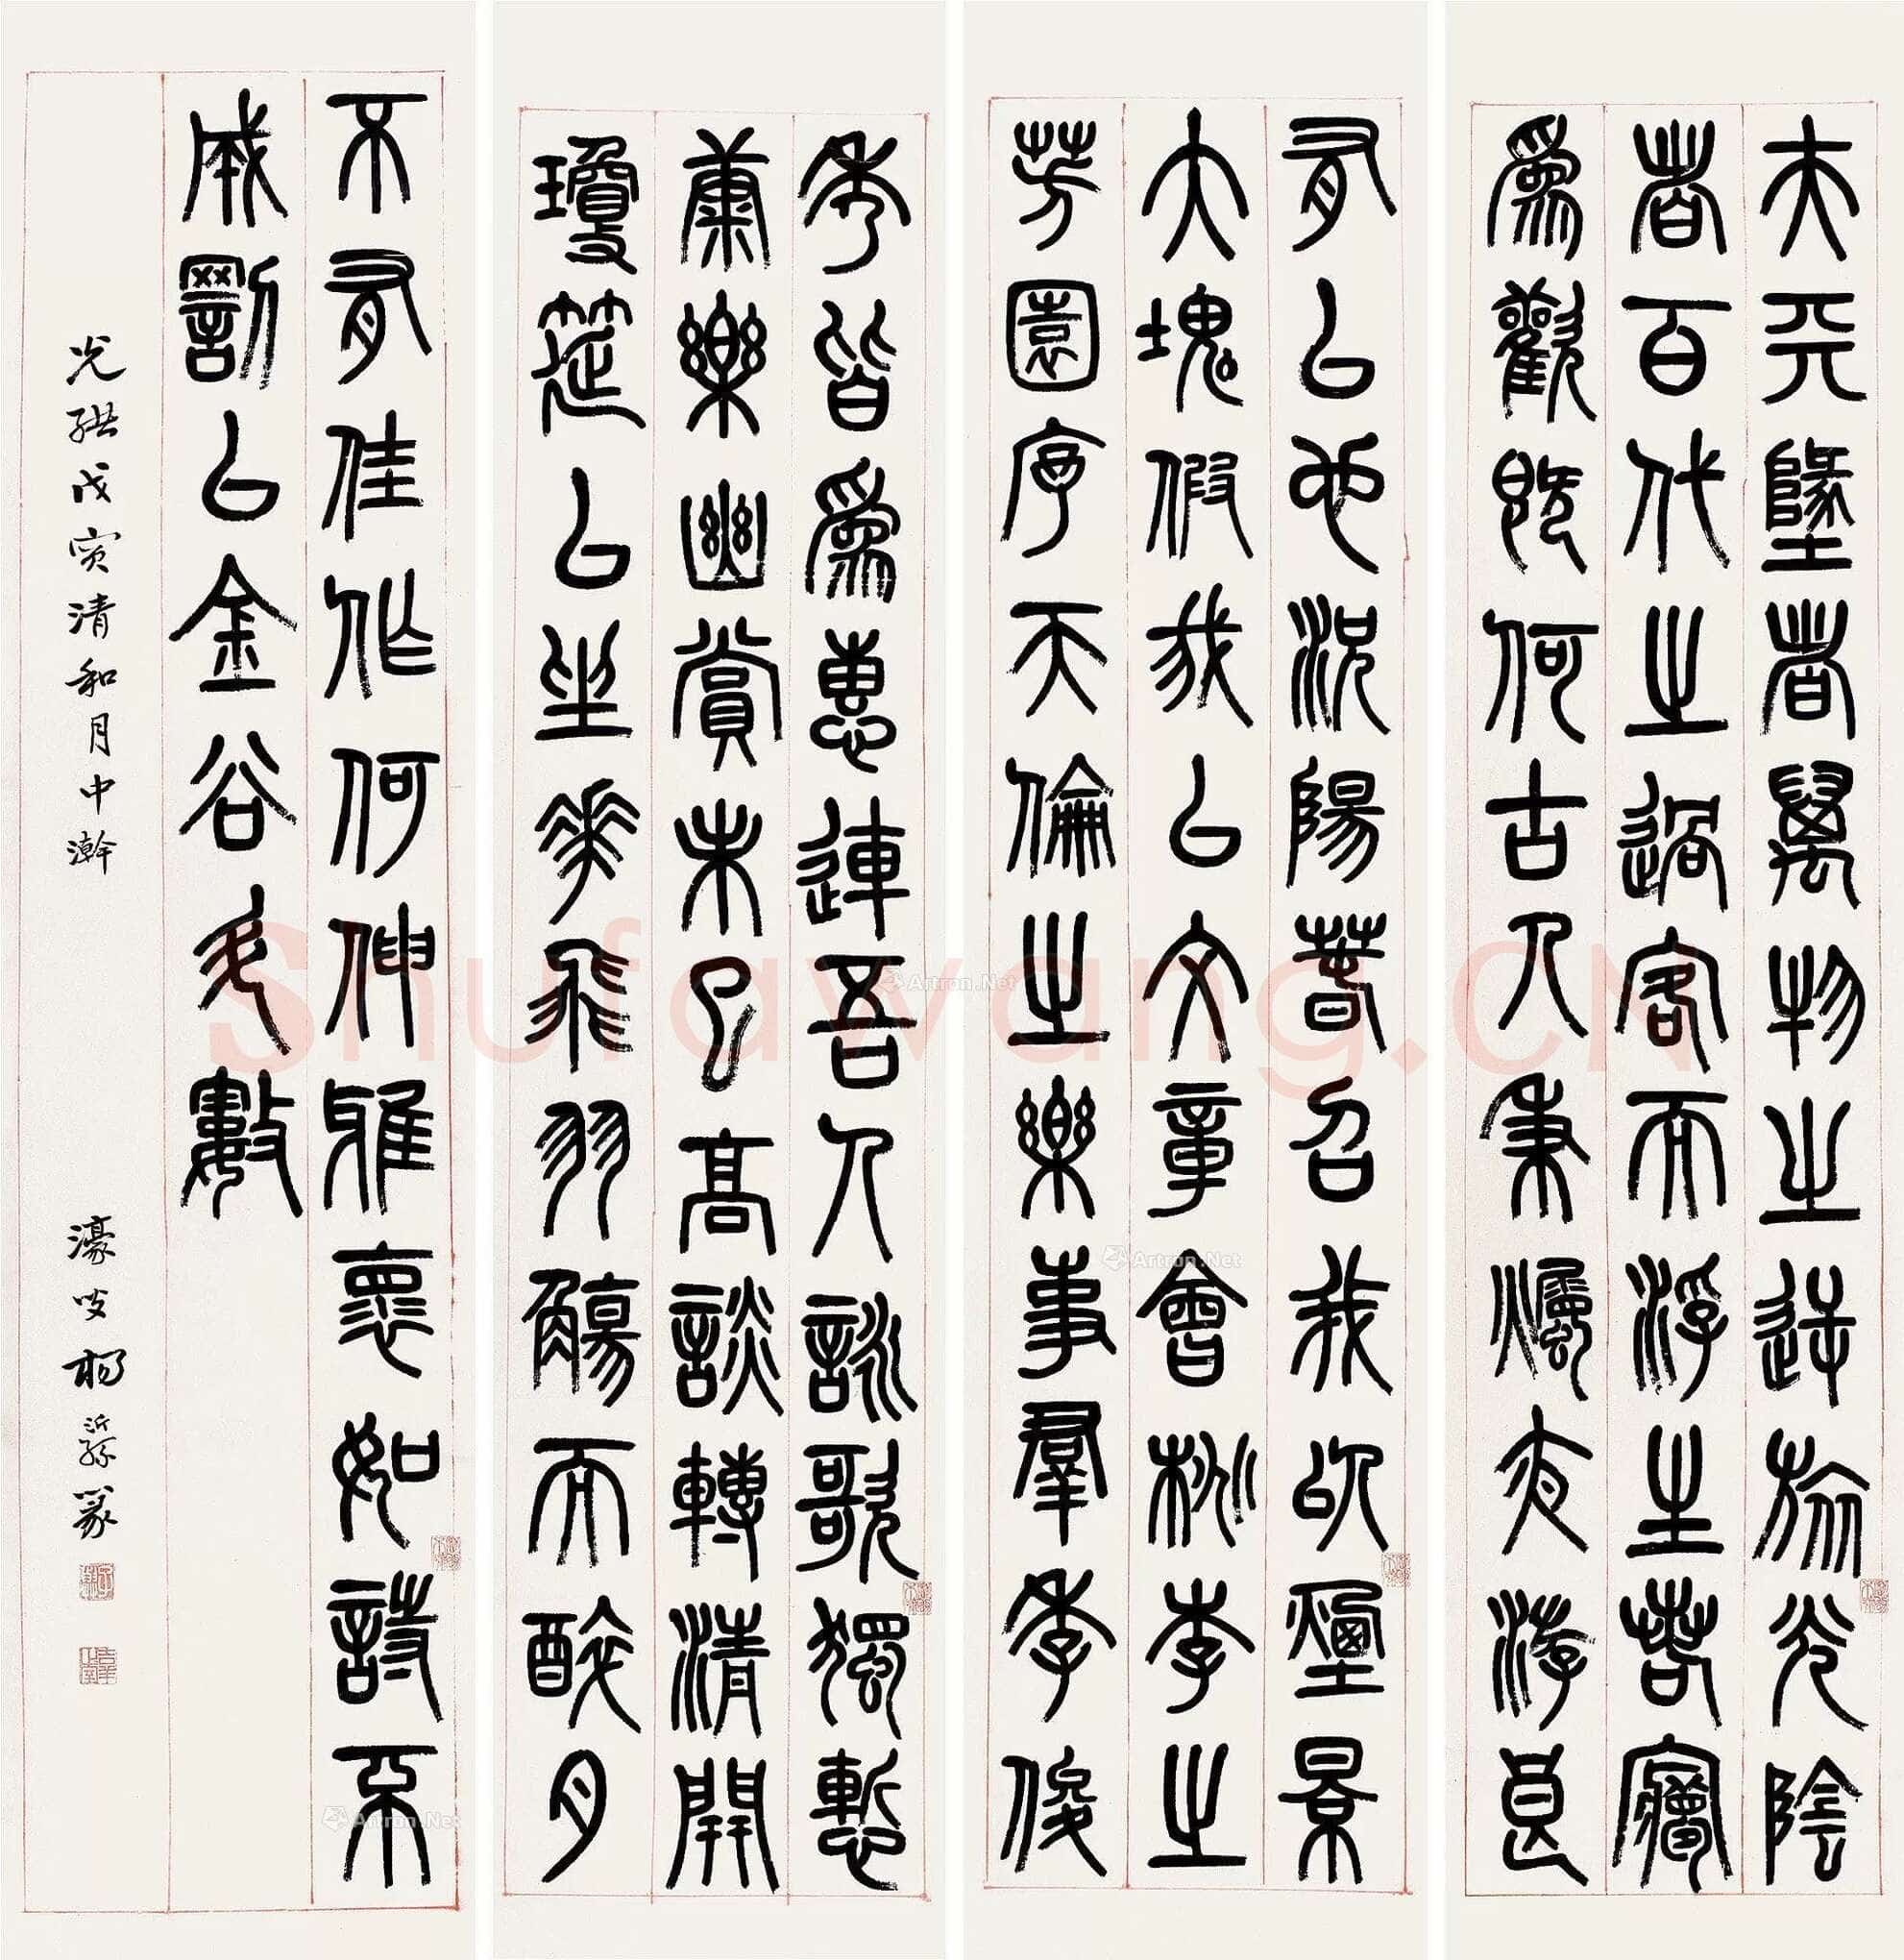 夫天墬者萬物之逆旅光陰
者百代之過客而浮生若夢
爲歡既何古人秉燭夜游良
有以也況陽春召我以煙景
大塊假我以文章會桃李之
芳園序天倫之樂事羣季俊
秀皆爲惠連吾人詠歌獨慙
康樂幽賞未已高談轉清開
瓊筵以坐花飛羽觴而醉月
不有佳作何伸雅懷如詩不
成罰以金谷斗數
光緒戊寅清和月中澣 濠叟楊沂孫篆
Shufawang.CN
Artron.Net
Artron.Net
Artron.Net